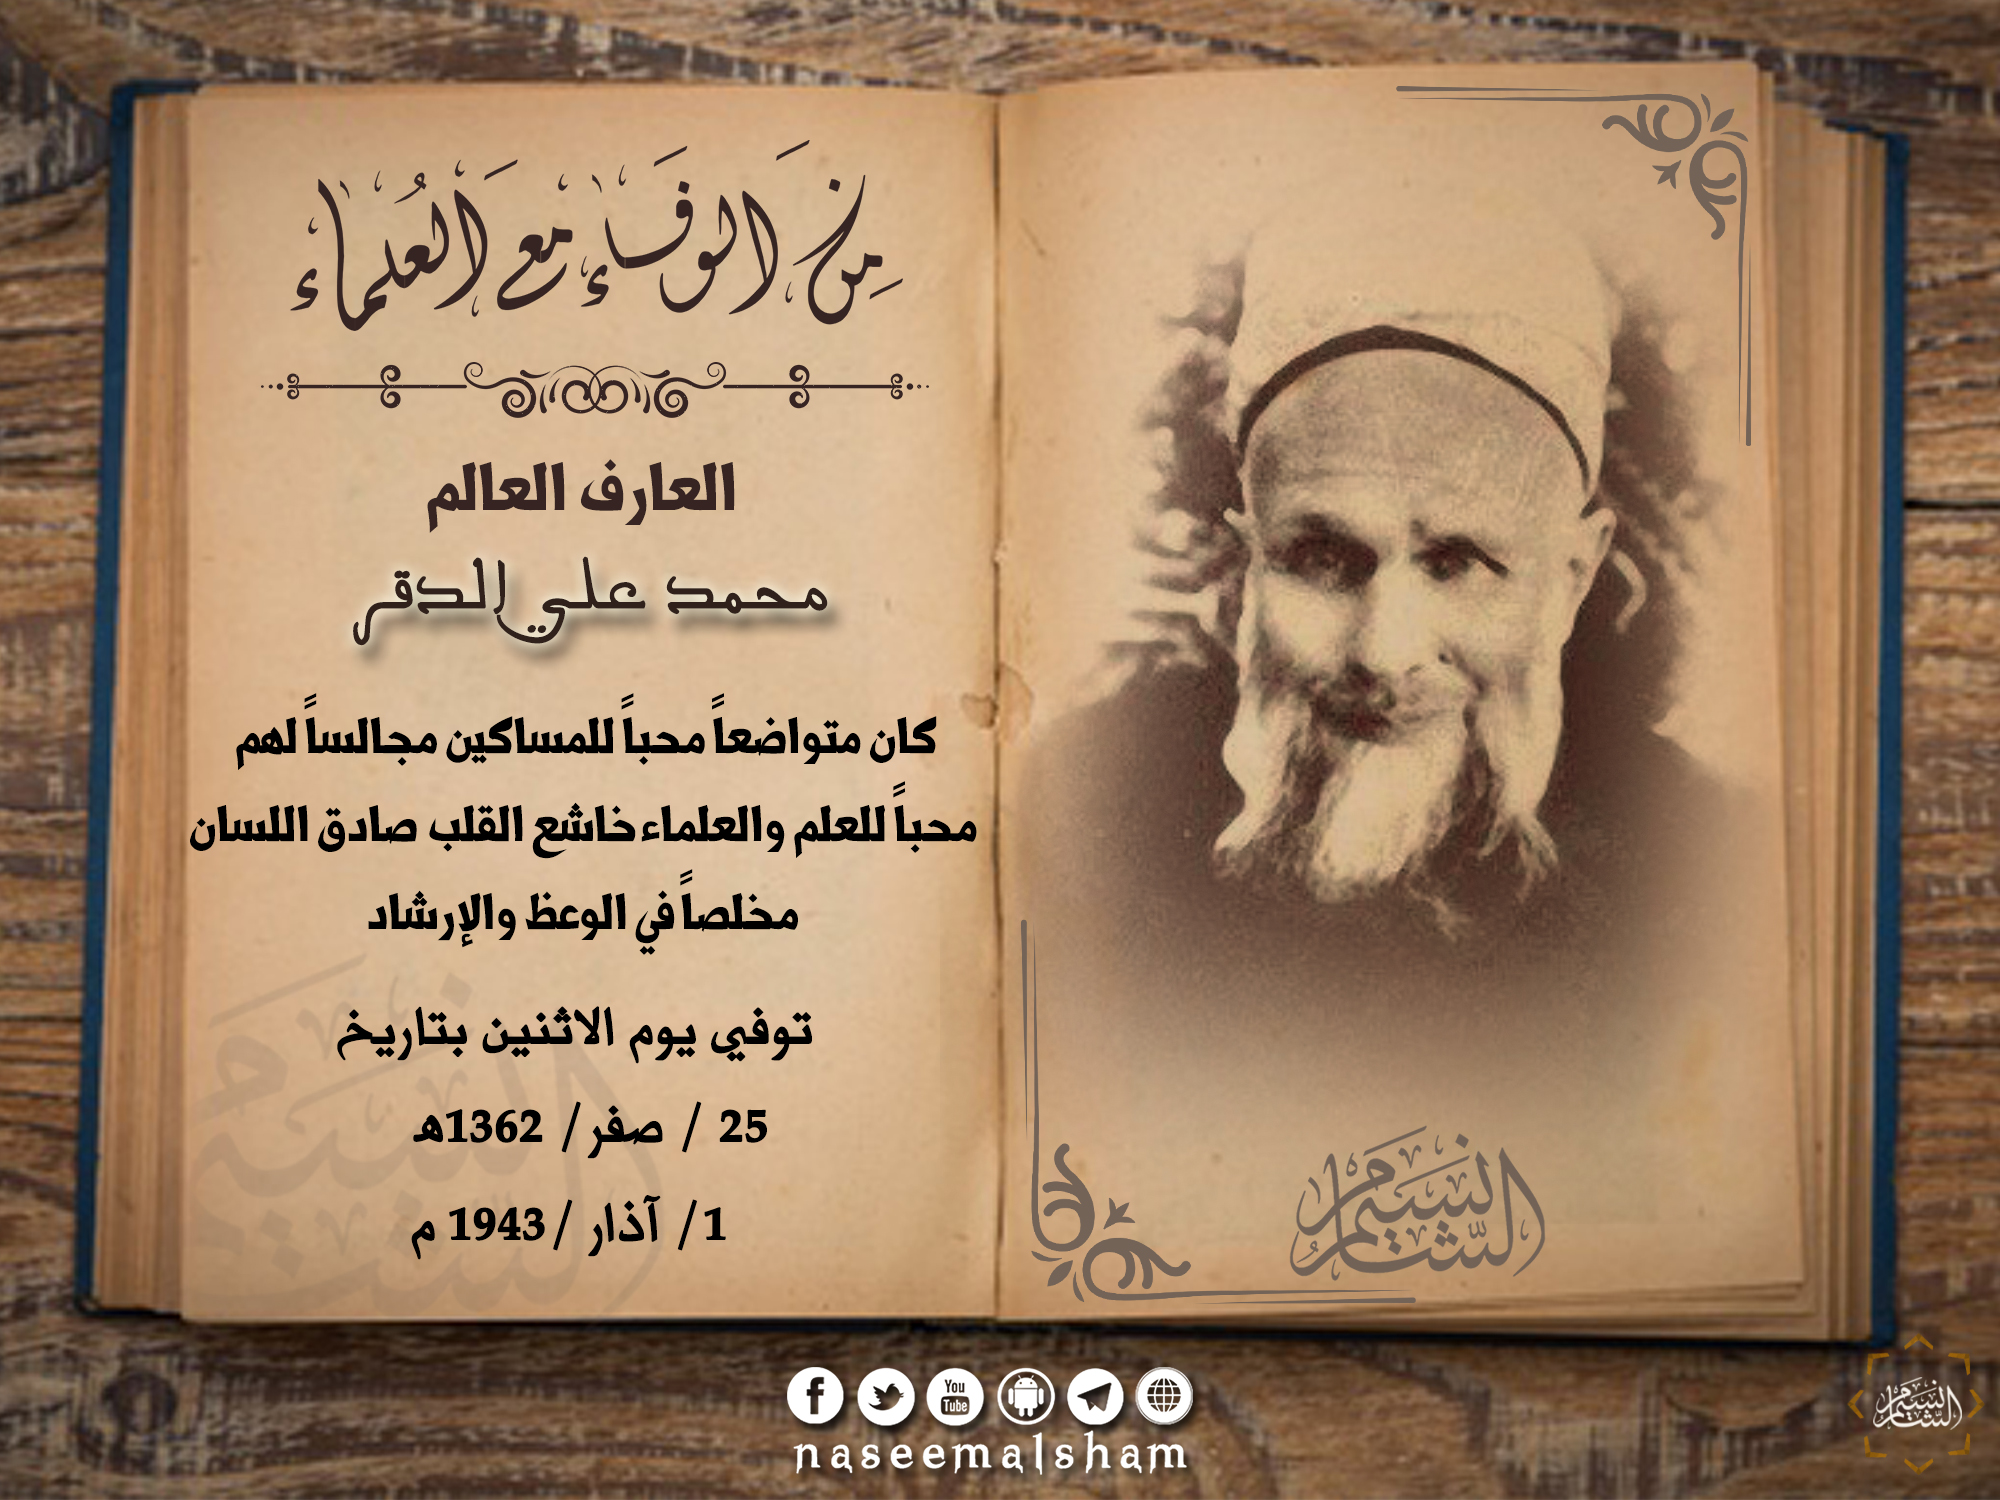 من الوفاء مع العلماء
العارف العالم
محمد علي الدقر
كان متواضعاً محباً للمساكين مجالساً لهم
محباً للعلم والعلماء خاشع القلب صادق اللسان
مخلصاً في الوعظ والإرشاد
توفي يوم الاثنين بتاريخ
25 / صفر / 1362هـ
1/ آذار /1943 م
نسيم الشام
You Tube
naseemalsham
نسيم الشام